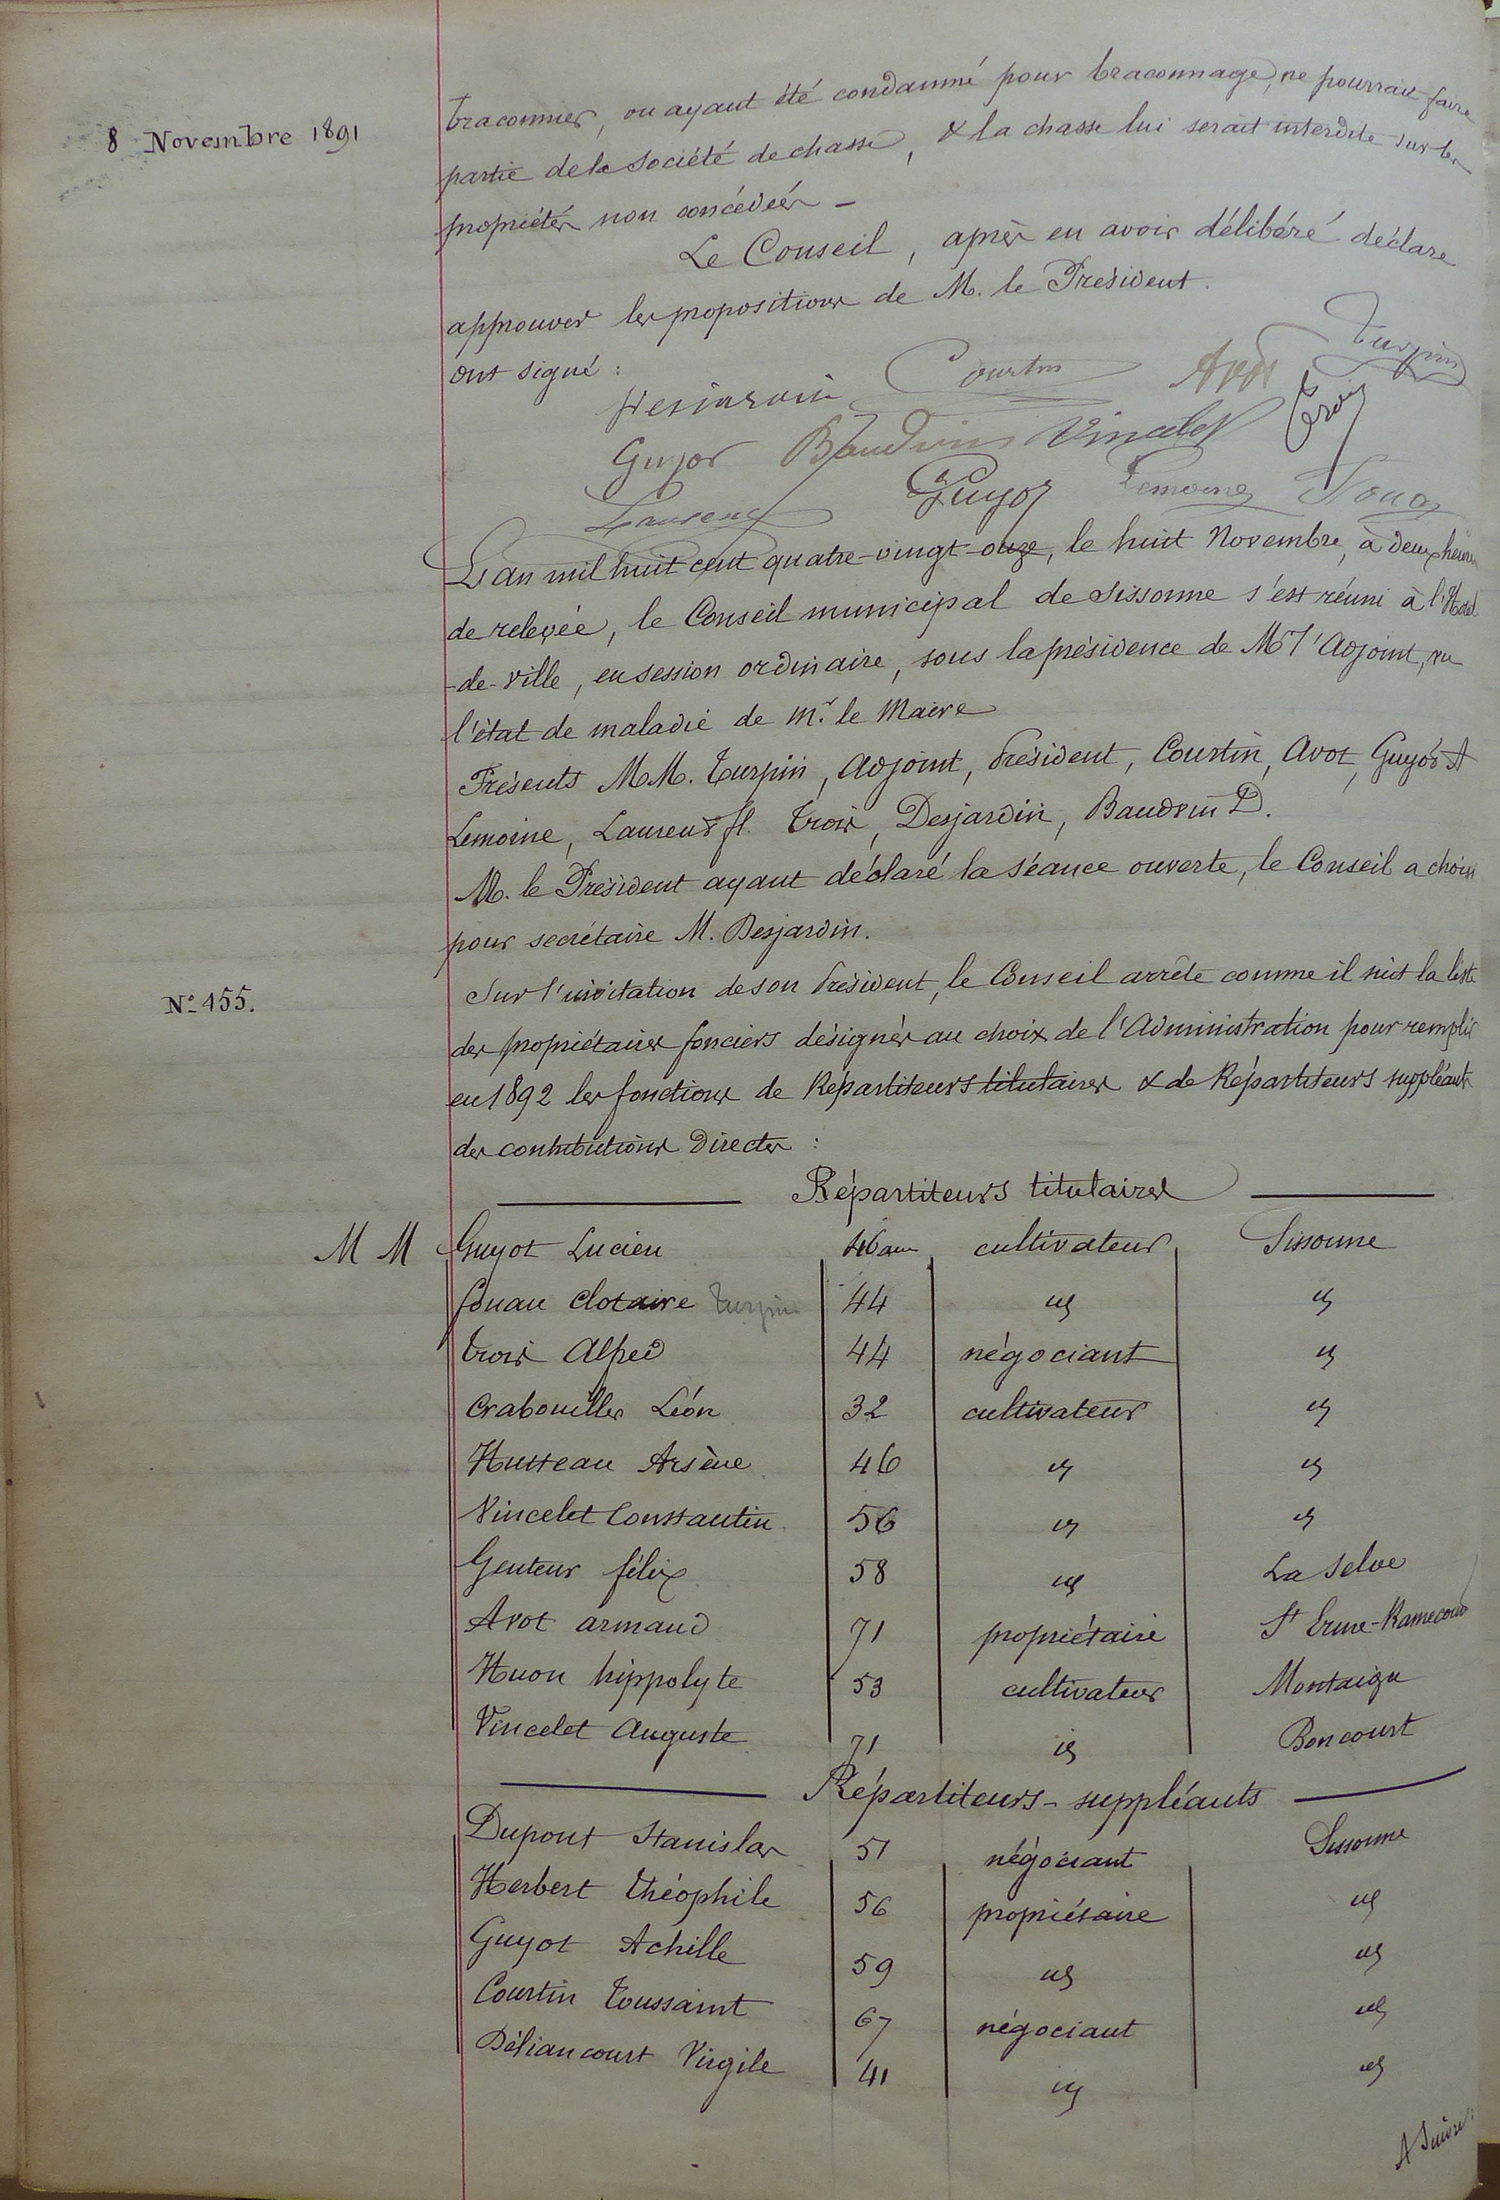 8 Novembre 1891
braconnier, ou ayant été condamné pour braconnage, ne pourrait faire
partie de la Société de chasse, & la chasse lui serait interdite sur les
propriétés non concédées -
Le Conseil, après en avoir délibéré déclare
approuver les propositions de M. le Président.
ont signé :
Desjardin Courtin Avot Turpin
Guyot Baudoin Vincelet Croix
Laurent Guyot Lemoine
L'an mil huit cent quatre-vingt-onze, le huit Novembre, à deux heures
de relevée, le Conseil municipal de Sissonne s'est réuni à l'Hotel
-de-ville, en session ordinaire, sous la présidence de Mr l'Adjoint, vu
l'état de maladie de Mr. le Maire
Présents MM. Turpin, Adjoint, Président, Courtin, Avot, Guyot A
Lemoine, Laurent fl. Croix, Desjardin, Baudoin D.
M. le Président ayant déclaré la séance ouverte, le Conseil a choisi
pour secrétaire M. Desjardin.
N° 155.
Sur l'invitation de son Président, le Conseil arrête comme il suit la liste
des propriétaires fonciers désignés au choix de l'Administration pour remplir
en 1892 les fonctions de Répartiteurs titulaires & de Répartiteurs suppléants
des contributions Directes :
Répartiteurs titulaires
M M Guyot Lucien 46 ans cultivateur Sissonne
fouau Clotaire Turpin 44 id id
Croix Alfred 44 négociant id
Crabouillet Léon 32 cultivateur id
Husseau Arsène 46 id id
Vincelet Constantin 56 id id
Genteur félix 58 id La Selve
Avot armand 71 propriétaire St Erme-Ramecourt
Huon hippolyte 53 cultivateur Montaigu
Vincelet Auguste 71 id Boncourt
Répartiteurs-suppléants
Dupont Stanislas 51 négociant Sissonne
Herbert théophile 56 propriétaire id
Guyot Achille 59 id id
Courtin Toussaint 67 négociant id
Déliancourt Virgile 41 id id
A Suivre